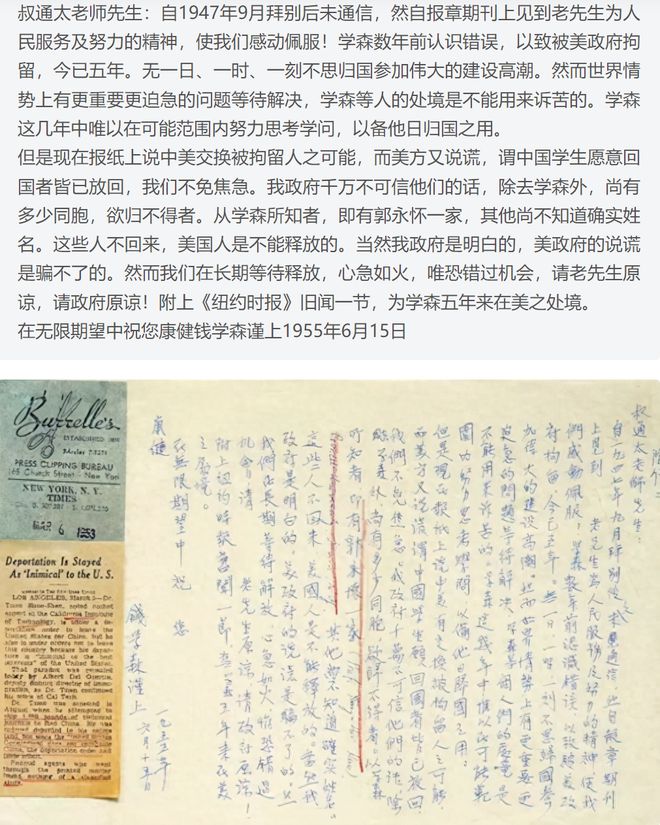 叔通太老师先生：自1947年9月拜别后未通信，然自报章期刊上见到老先生为人
民服务及努力的精神，使我们感动佩服！学森数年前认识错误，以致被美政府拘
留，今已五年。无一日、一时、一刻不思归国参加伟大的建设高潮。然而世界情
势上有更重要更迫急的问题等待解决，学森等人的处境是不能用来诉苦的。学森
这几年中唯以在可能范围内努力思考学问，以备他日归国之用。
但是现在报纸上说中美交换被拘留人之可能，而美方又说谎，谓中国学生愿意回
国者皆已放回，我们不免焦急。我政府千万不可信他们的话，除去学森外，尚有
多少同胞，欲归不得者。从学森所知者，即有郭永怀一家，其他尚不知道确实姓
名。这些人不回来，美国人是不能释放的。当然我政府是明白的，美政府的说谎
是骗不了的。然而我们在长期等待释放，心急如火，唯恐错过机会，请老先生原
谅，请政府原谅！附上《纽约时报》旧闻一节，为学森五年来在美之处境。
在无限期望中祝您康健钱学森谨上1955年6月15日
叔通太老師先生：
自一九四七年九月拜別後未通信，然自報章期刊
上見到 老先生為人民服務及努力的精神，使我
們感動佩服！學森數年前認識錯誤，以致被美政
府拘留，今已五年。無一日一时一刻不思歸國參
加偉大的建設高潮。然而世界情勢上有更重要更
迫急的問題等待解決，學森等人的處境是
不能用來訴苦的。學森這幾年中唯以在可能範
圍內努力思考學問，以備他日歸國之用。
但是現在報紙上說中美有交換被拘留人之可能，
而美方又說謊，謂中國學生願意回國者皆已放回，
我們不免焦急。我政府千萬不可信他們的話，除
學森外，尚有多少同胞，欲歸不得者。以學森
所知者，即有郭永懷一家
其他尚不知道確實姓名。
這些人不回來，美國人是不能釋放的。當然我
政府是明白的，美政府的說謊是騙不了的。然
我們在長期等待解放，心急如火，唯恐錯過
機會，請 老先生原諒，請政府原諒！
附上紐約時報舊聞一節，為學森五年來在美
之處境。
在無限期望中祝 您
康健
錢學森謹上
一九五五年
六月十五日
Burrelle's
ESTABLISHED 1888
PRESS CLIPPING BUREAU
165 Church Street - New York
NEW YORK, N. Y.
TIMES
MAR 6 1953
Deportation Is Stayed
As 'Inimical' to the U. S.
LOS ANGELES, March 5—Dr.
Tsien Hsue-Shen, noted rocket
expert at the California Institute
of Technology, is under a de-
portation order to leave the
United States for China, but he
also is under orders not to leave
this country because his depar-
ture is "inimical to the best
interests" of the United States.